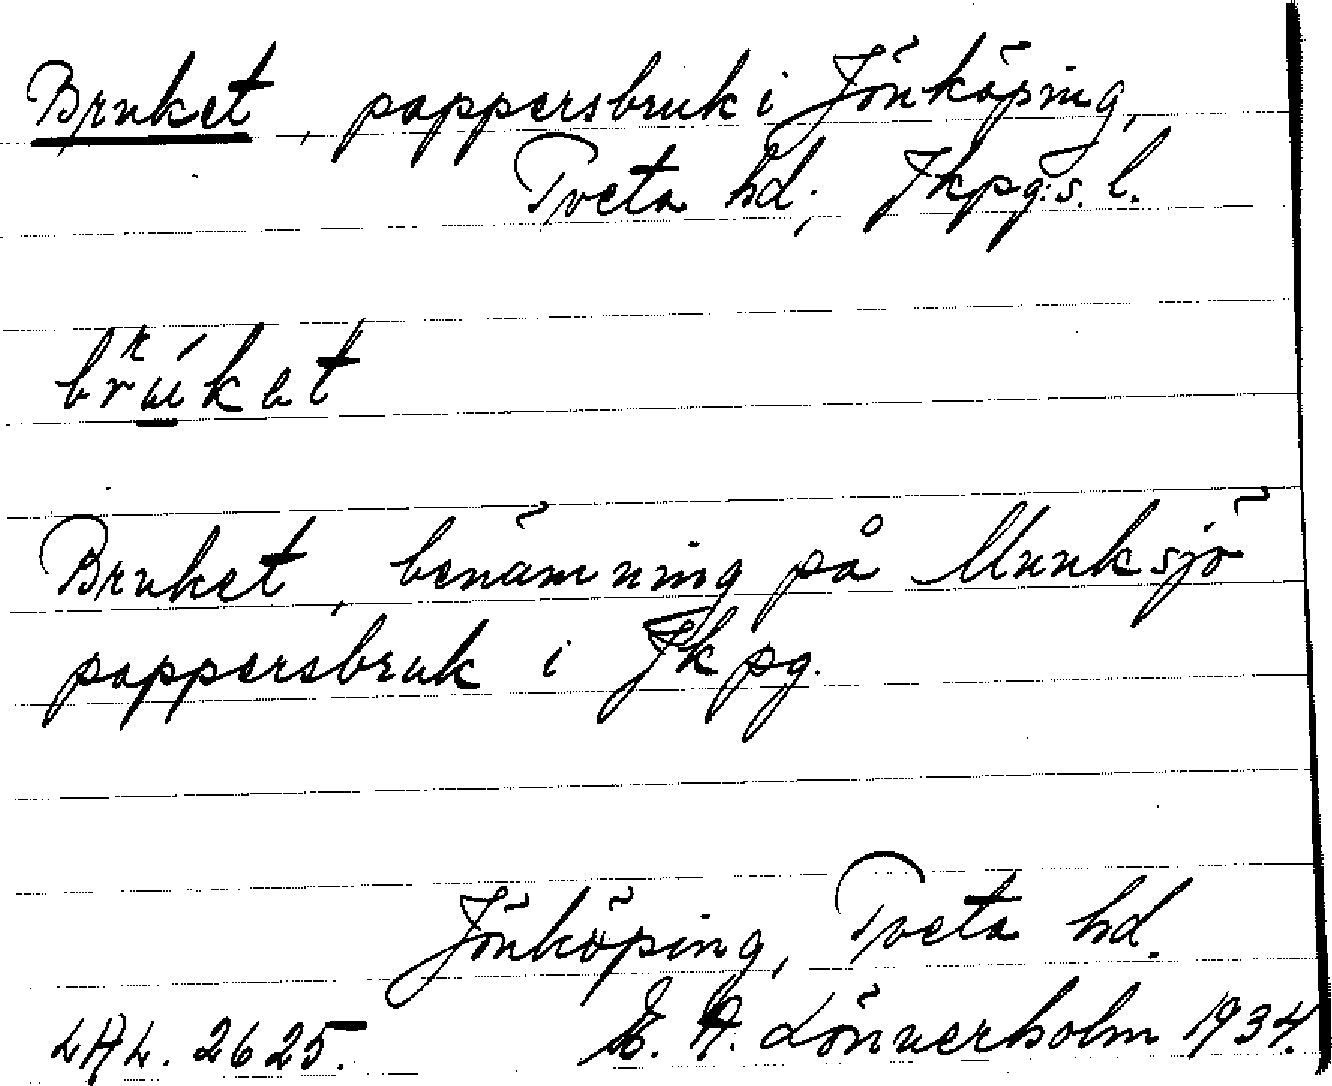 Bruket, pappersbruk i Jönköping,
Tveta hd, Jkpg:s. l.
brúket
Bruket, benämning på Munksjö
pappersbruk i Jkpg.
Jönköping, Tveta hd.
LAL. 2625. E. A. Lönnerholm 1934.